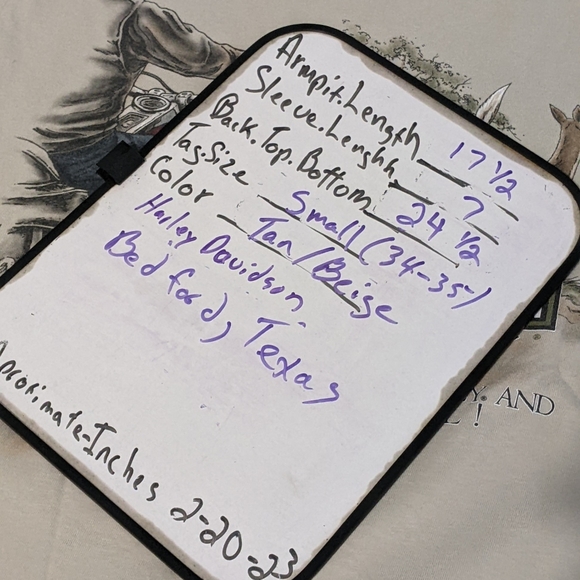 Armpit.Length 17 1/2
Sleeve.Lenghh 7
Back.Top.Bottom 24 1/2
Tag.Size Small (34-35)
Color Tan/Beige
Harley Davidson
Bedford, Texas
AND
!
Approximate-Inches 2-20-23